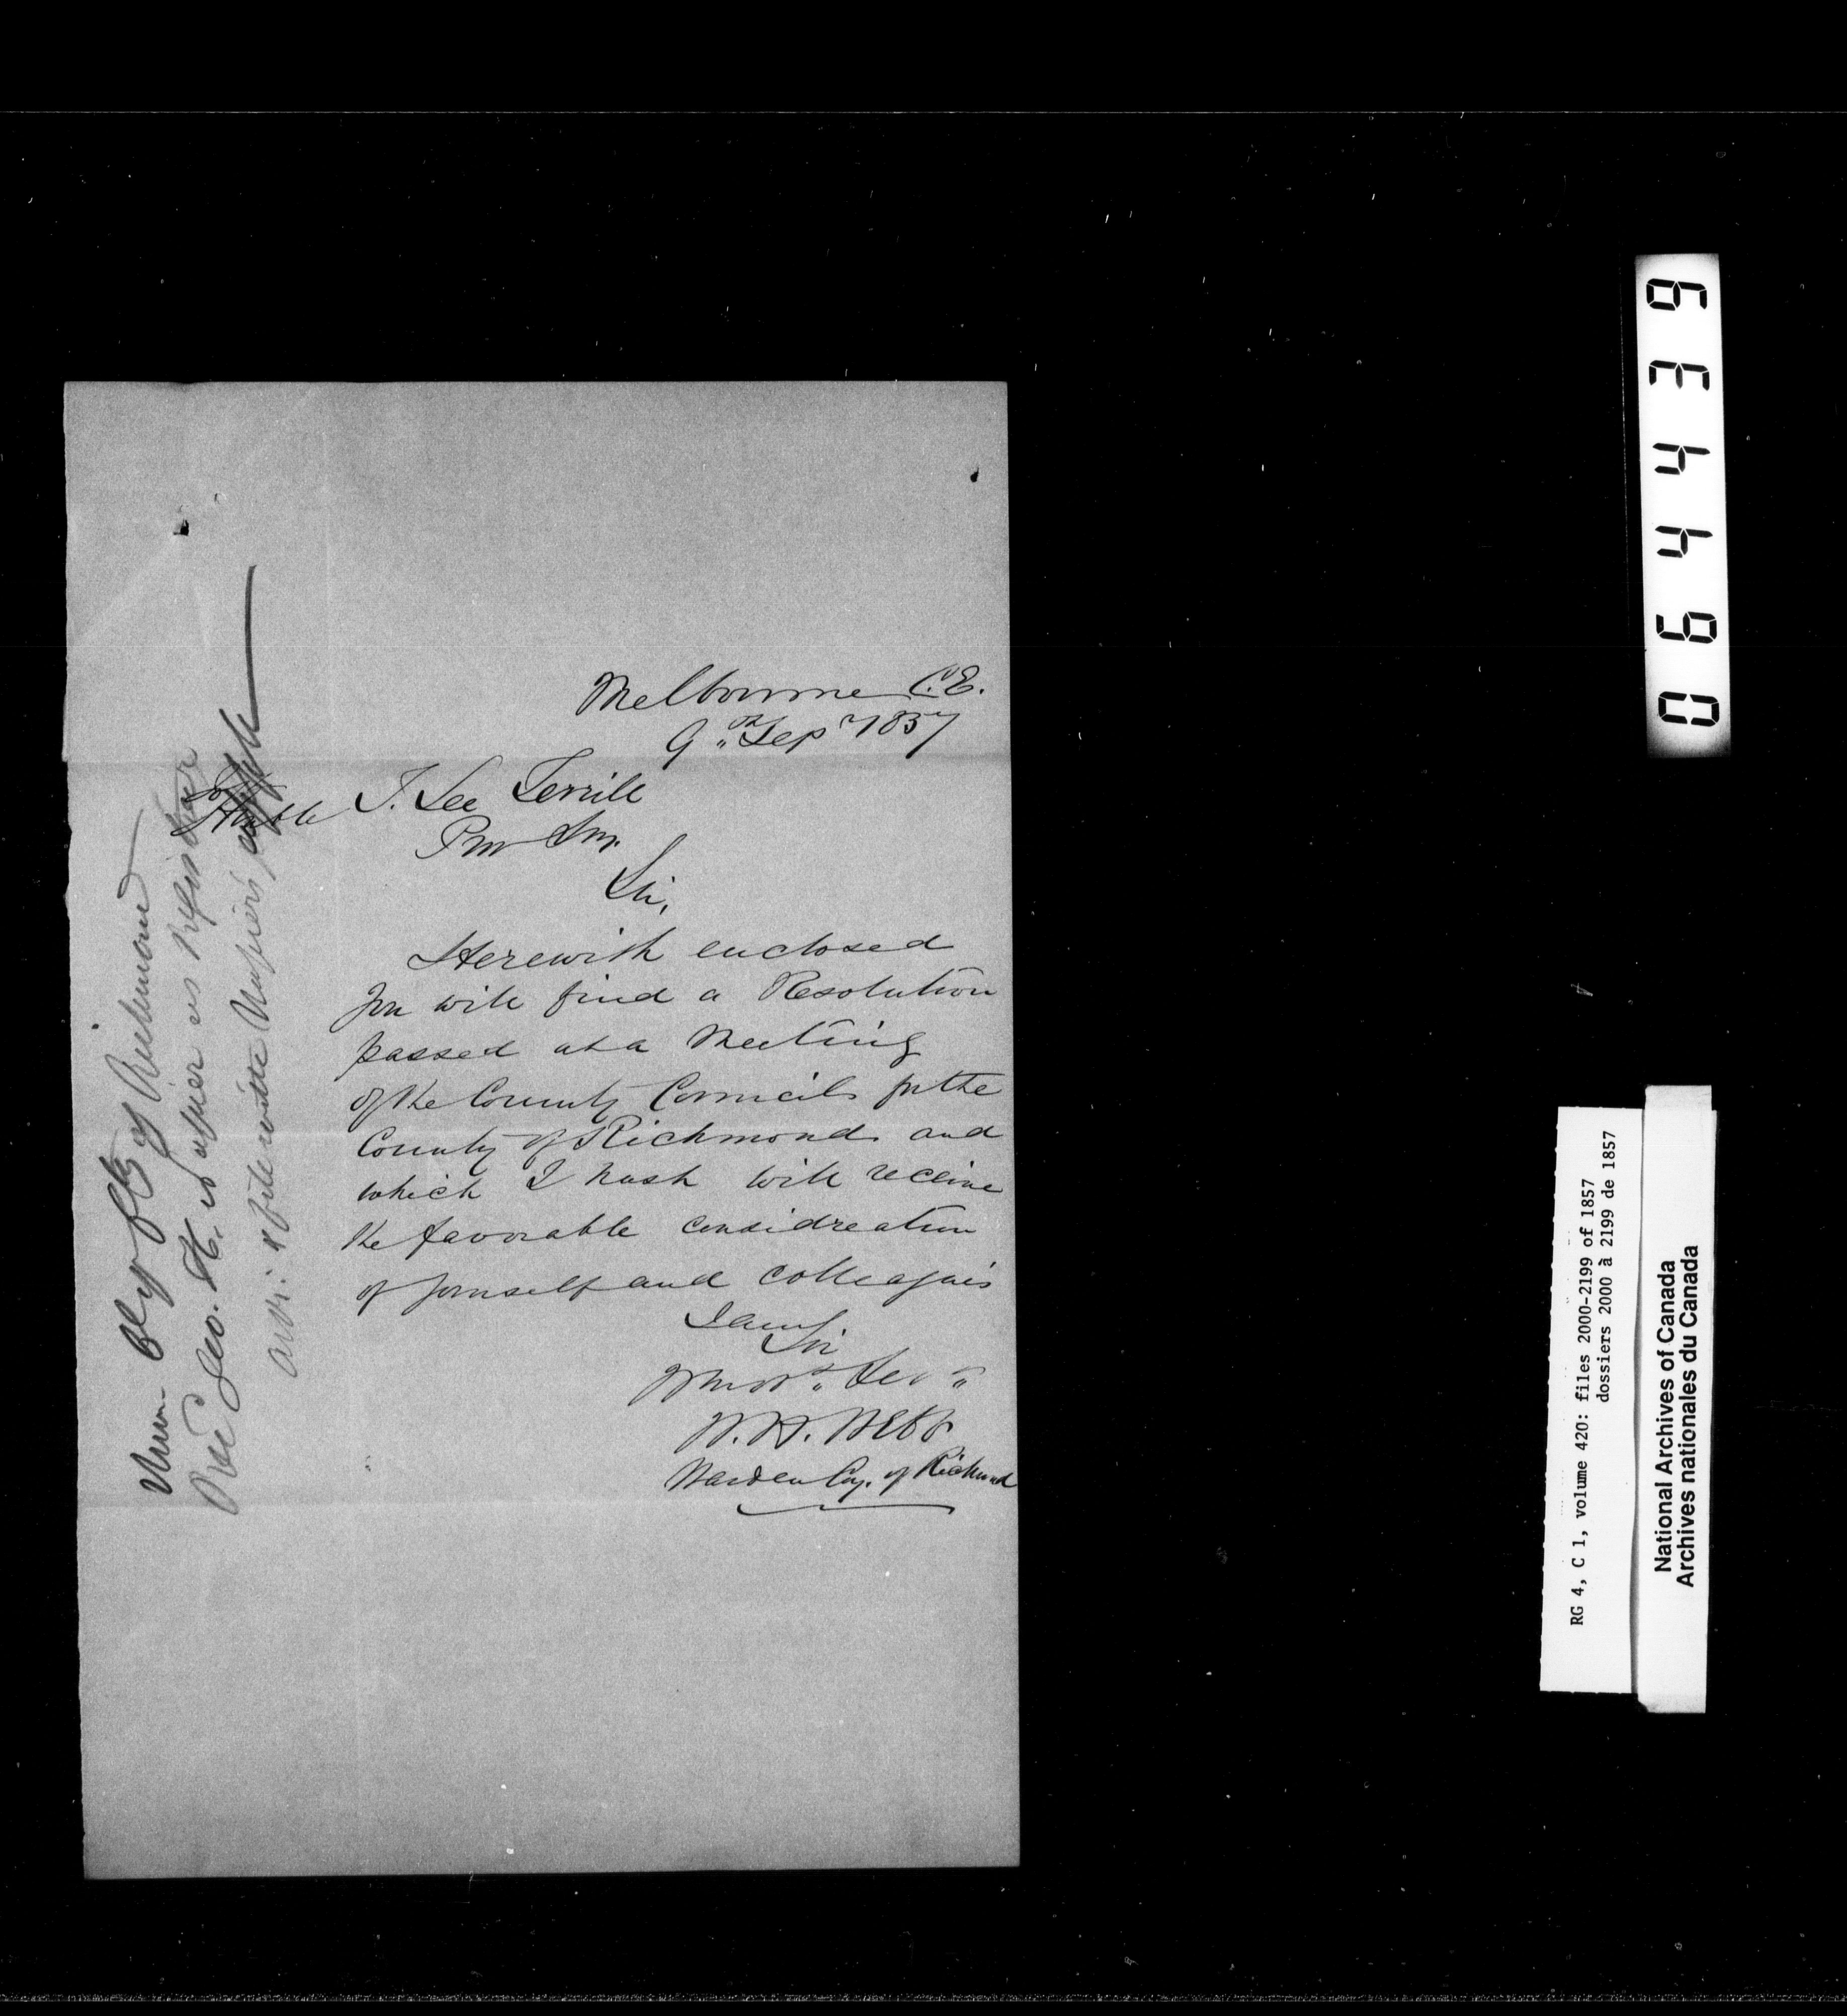 Melbourne C.E.
9th Sepr 1857
To
Honble T. Lee Terrill
Prov Sec.
Sir,
Herewith enclosed
you will find a Resolution
passed at a Meeting
of the County Council for the
County of Richmond and
which I trust will receive
the favorable considreation
of yourself and Colleagues
I am
Sir
Your obt. Ser.
W. H. Webb
Warden Cy. of Richmond
Mun Clg of Cty of Richmond
Geo. H. Napier as Registrar
064439
RG 4, C 1, volume 420: files 2000-2199 of 1857
dossiers 2000 à 2199 de 1857
National Archives of Canada
Archives nationales du Canada